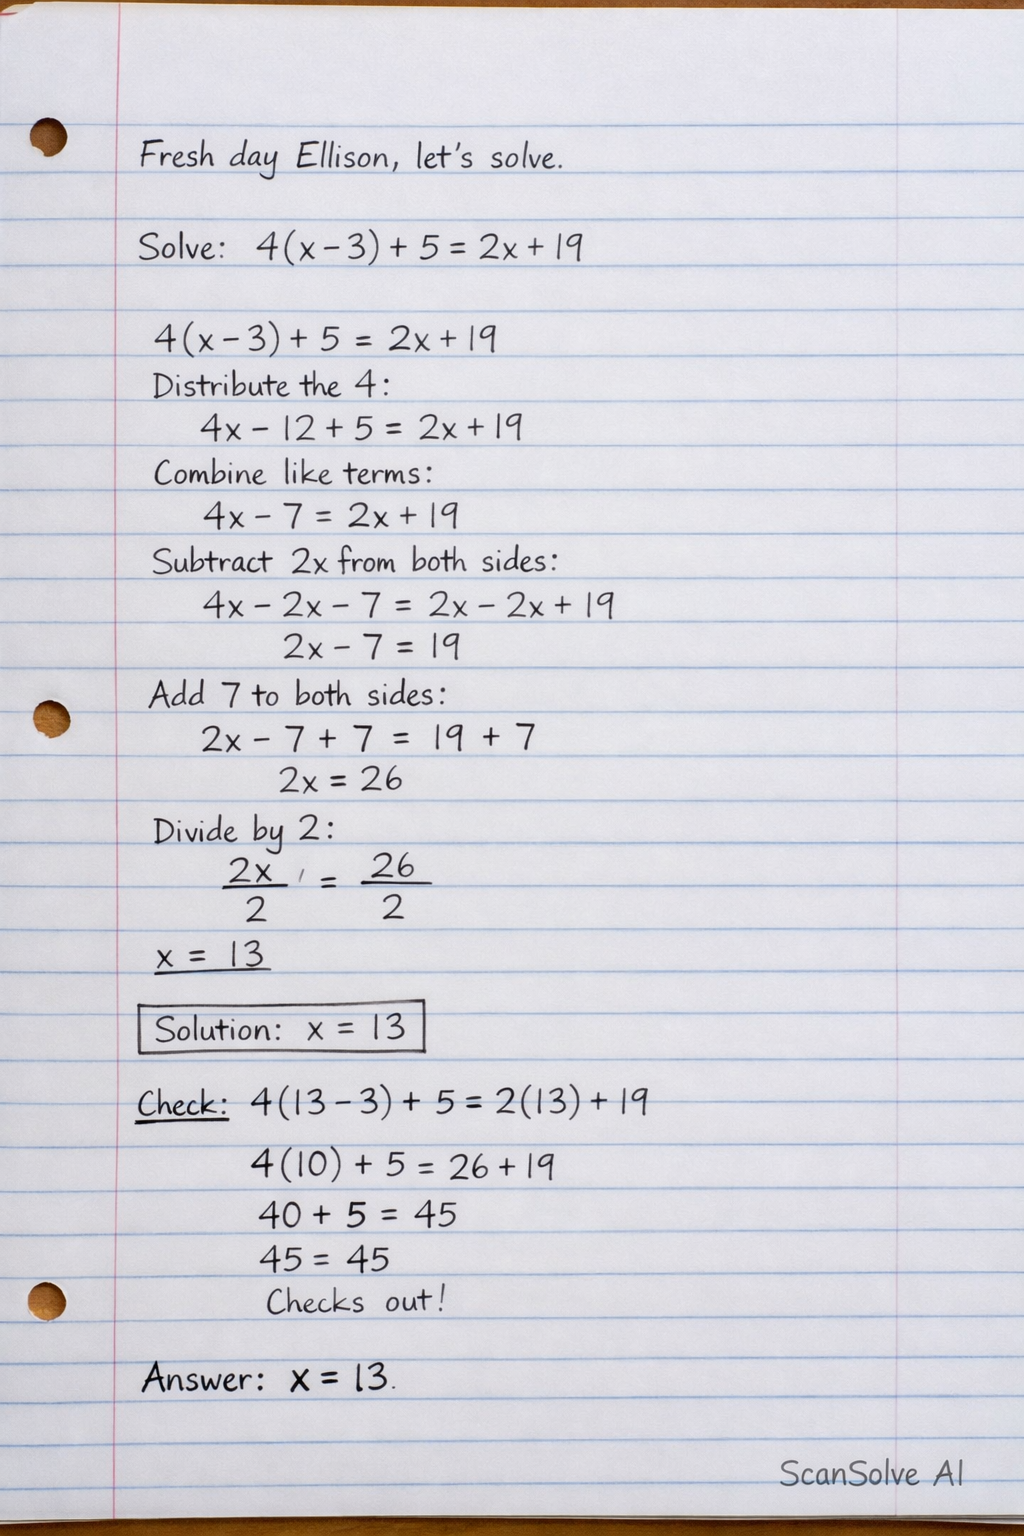 Fresh day Ellison, let's solve.
Solve: 4(x-3) + 5 = 2x + 19
4(x-3) + 5 = 2x + 19
Distribute the 4:
4x - 12 + 5 = 2x + 19
Combine like terms:
4x - 7 = 2x + 19
Subtract 2x from both sides:
4x - 2x - 7 = 2x - 2x + 19
2x - 7 = 19
Add 7 to both sides:
2x - 7 + 7 = 19 + 7
2x = 26
Divide by 2:
2x/2 = 26/2
x = 13
Solution: x = 13
Check: 4(13-3) + 5 = 2(13) + 19
4(10) + 5 = 26 + 19
40 + 5 = 45
45 = 45
Checks out!
Answer: x = 13.
ScanSolve AI